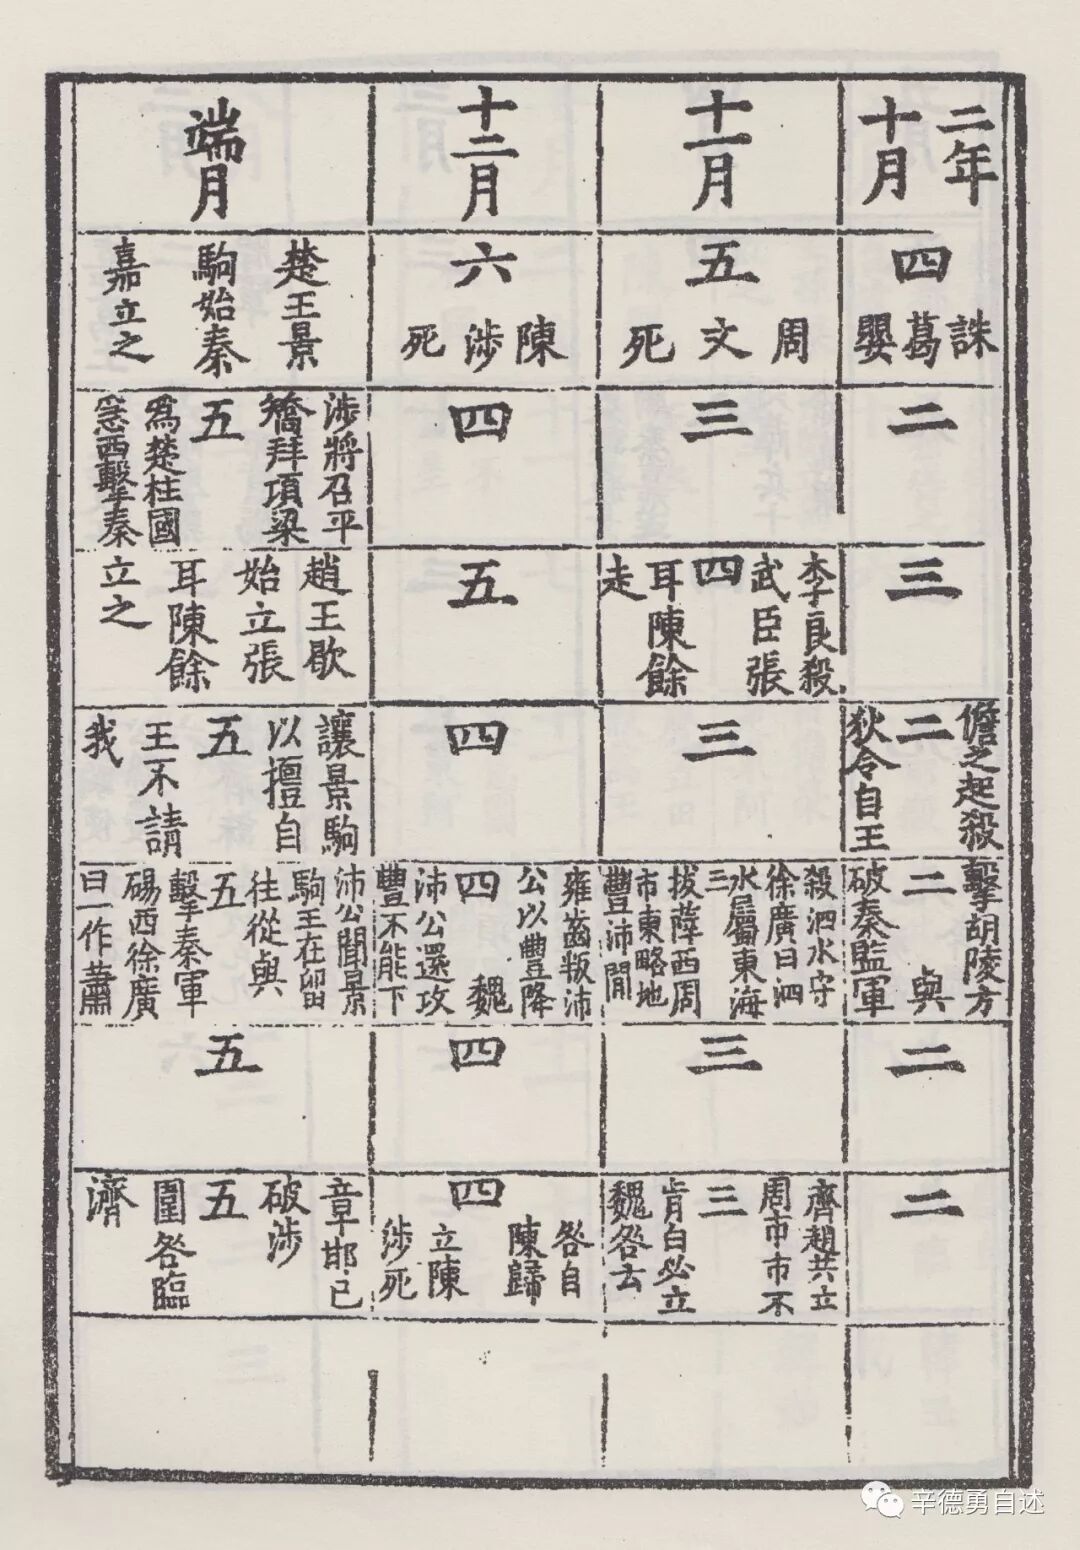 二年
十月
四
誅葛嬰
二
三
儋之起殺
二
狄令自王
擊胡陵方
二與
破秦監軍
二
二
十一月
五
周文死
三
李良殺
武臣張
四
耳陳餘
走
三
殺泗水守
徐廣曰泗
水屬東海
三
拔薛西周
市東略地
豐沛閒
三
齊趙共立
周市市不
三
肯白必立
魏咎去
十二月
六
陳涉死
四
五
四
雍齒叛沛
公以豐降
四魏
沛公還攻
豐不能下
四
咎自
陳歸
四
立陳
涉死
端月
楚王景
駒始秦
嘉立之
涉將召平
矯拜項梁
五
爲楚柱國
急西擊秦
趙王歇
始立張
耳陳餘
立之
讓景駒
以擅自
五
王不請
我
沛公聞景
駒王在留
往從與
五
擊秦軍
碭西徐廣
曰一作蕭
五
章邯已
破涉
五
圍咎臨
濟
辛德勇自述